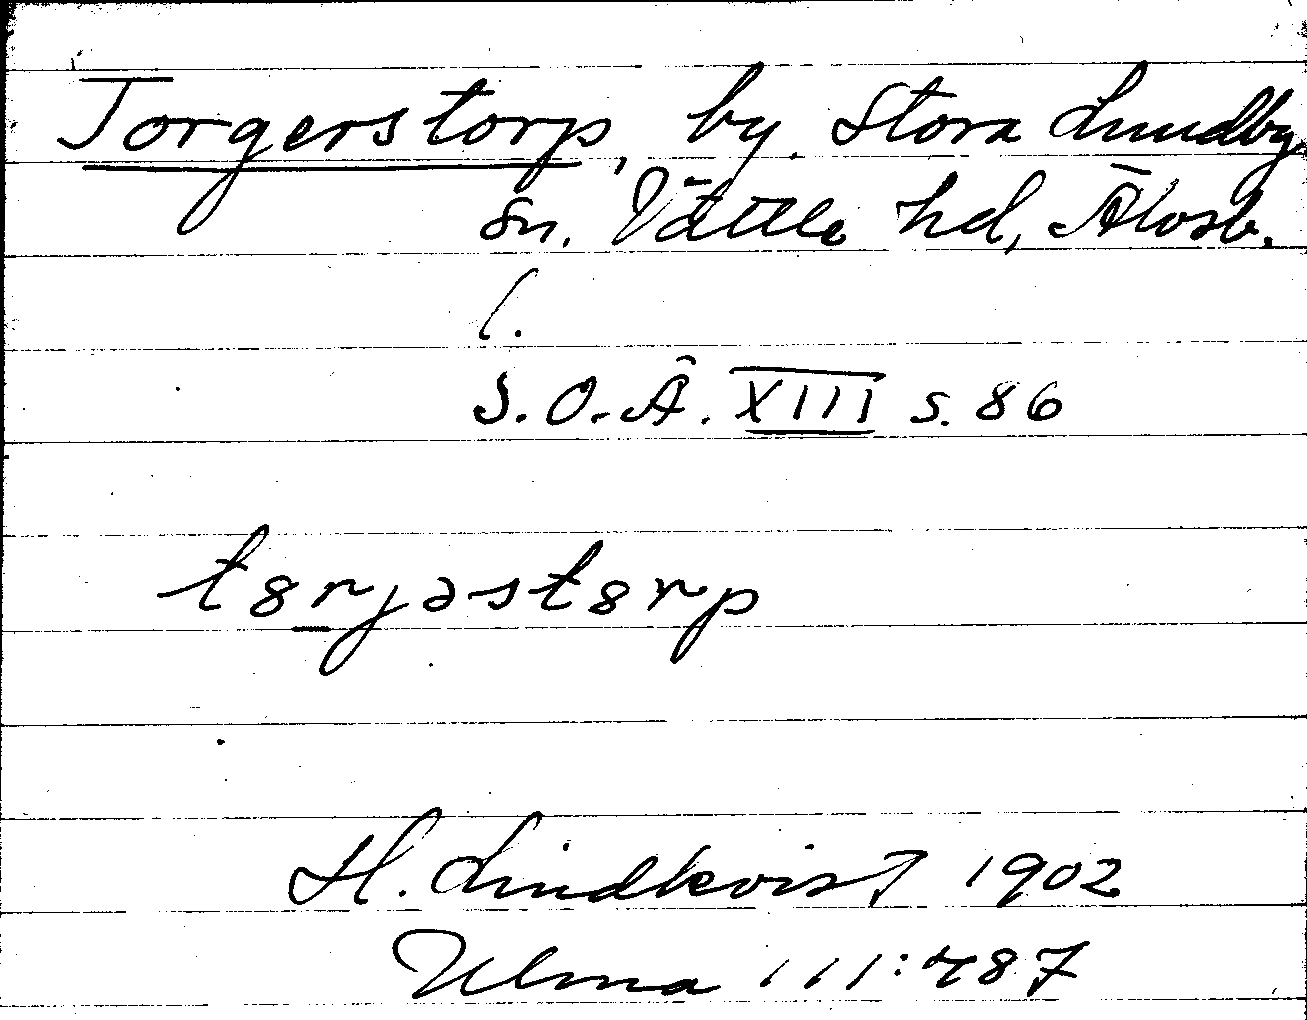 Torgerstorp, by. Stora Lundby
sn. Vättle hd, Älvsb.
l.
S.O.Ä. XIII s. 86
t8rjəst8rp
H. Lindkvist 1902
Ulma 111:487